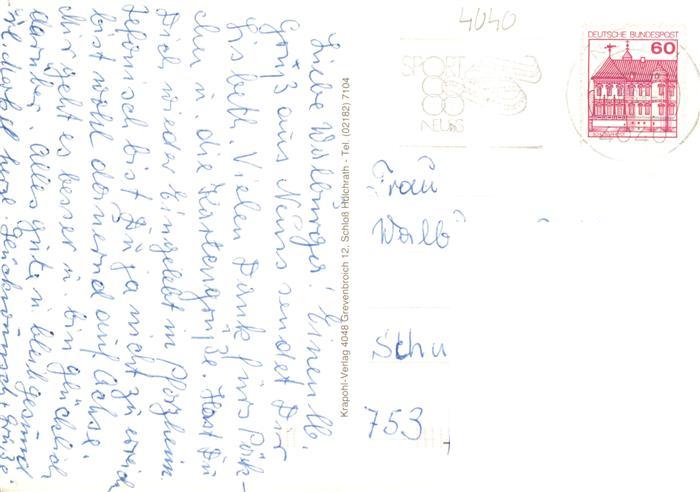 Liebe Walburga! Einen lb.
Gruß aus Neuss sendet Dir
Gisbeth. Vielen Dank fürs Päck-
chen u. die Kartengrüße. Hast Du
Dich wieder eingelebt in Pforzheim.
Telefonisch bist Du ja nicht zu erreich
bist wohl dauernd auf Achse.
Mir geht es besser u. bin glücklich
darüber. Alles gute u. bleib gesund
herzl. Grüße.
Krapohl-Verlag 4048 Grevenbroich 12, Schloß Hülchrath - Tel. (02182) 7104
4040
SPORT
NEUSS
DEUTSCHE BUNDESPOST
60
4040
Frau
Walb
Schu
753